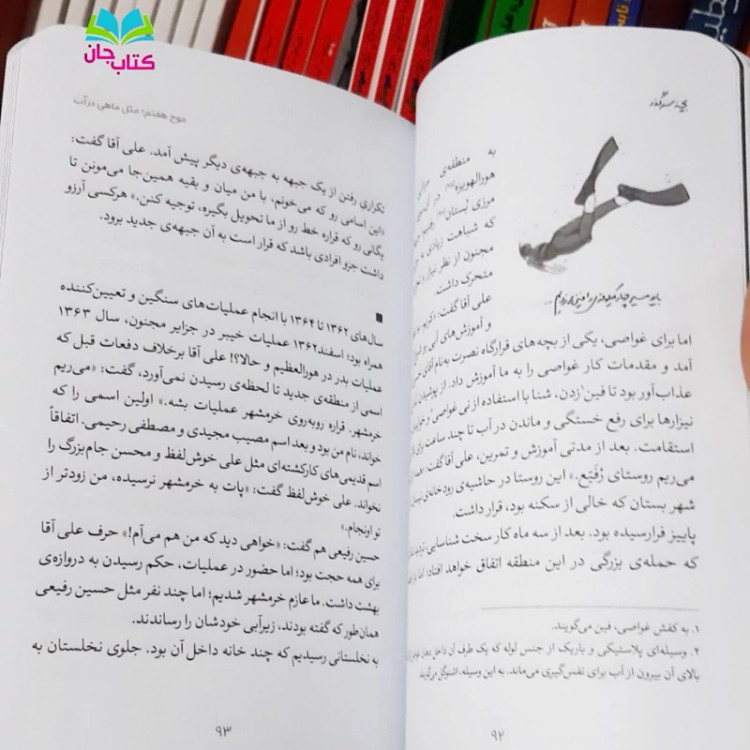 کتاب جان
به منطقه‌ی
هورالهویزه
مرزی بُستان
که شباهت زیادی به
مجنون از نظر نیزار و
متحرک داشت.
علی آقا گفت:
و آموزش‌های آبی
باید مسیر چهار کیلومتری را فین می‌زدیم...
اما برای غواصی، یکی از بچه‌های قرارگاه نصرت به‌نام آقای
آمد و مقدمات کار غواصی را به ما آموزش داد. از پوشیدن
عذاب‌آور بود تا فین¹زدن، شنا با استفاده از نی غواصی²
نیزارها برای رفع خستگی و ماندن در آب تا چند ساعت برای
استقامت. بعد از مدتی آموزش و تمرین، علی‌آقا گفت:
می‌ریم روستای رُفَیّع.» این روستا در حاشیه‌ی رودخانه‌ی
شهر بستان که خالی از سکنه بود، قرار داشت.
پاییز فرارسیده بود. بعد از سه ماه کار سخت شناسایی،
که حمله‌ی بزرگی در این منطقه اتفاق خواهد افتاد؛ اما
۱. به کفش غواصی، فین می‌گویند.
۲. وسیله‌ای پلاستیکی و باریک از جنس لوله که یک طرف آن داخل دهان
بالای آن بیرون از آب برای نفس‌گیری می‌ماند. به این وسیله، اشنوگل می‌گویند
۹۲
موج هفتم: مثل ماهی در آب
تکراری رفتن از یک جبهه به جبهه‌ی دیگر پیش آمد. علی آقا گفت:
«این اسامی رو که می‌خونم، با من میان و بقیه همین‌جا می‌مونن تا
یگانی رو که قراره خط رو از ما تحویل بگیره، توجیه کنن.» هرکسی آرزو
داشت جزو افرادی باشد که قرار است به آن جبهه‌ی جدید برود.
■
سال‌های ۱۳۶۲ تا ۱۳۶۴ با انجام عملیات‌های سنگین و تعیین‌کننده
همراه بود؛ اسفند۱۳۶۲ عملیات خیبر در جزایر مجنون، سال ۱۳۶۳
عملیات بدر در هورالعظیم و حالا؟! علی آقا برخلاف دفعات قبل که
اسمی از منطقه‌ی جدید تا لحظه‌ی رسیدن نمی‌آورد، گفت: «می‌ریم
خرمشهر. قراره روبه‌روی خرمشهر عملیات بشه.» اولین اسمی را که
خواند، نام من بود و بعد اسم مصیب مجیدی و مصطفی رحیمی. اتفاقاً
اسم قدیمی‌های کارکشته‌ای مثل علی خوش‌لفظ و محسن جام‌بزرگ را
نخواند. علی خوش‌لفظ گفت: «پات به خرمشهر نرسیده، من زودتر از
تو اونجام.»
حسین رفیعی هم گفت: «خواهی دید که من هم می‌آم!» حرف علی آقا
برای همه حجت بود؛ اما حضور در عملیات، حکم رسیدن به دروازه‌ی
بهشت داشت. ما عازم خرمشهر شدیم؛ اما چند نفر مثل حسین رفیعی
همان‌طور که گفته بودند، زیرآبی خودشان را رساندند.
به نخلستانی رسیدیم که چند خانه داخل آن بود. جلوی نخلستان به
۹۳